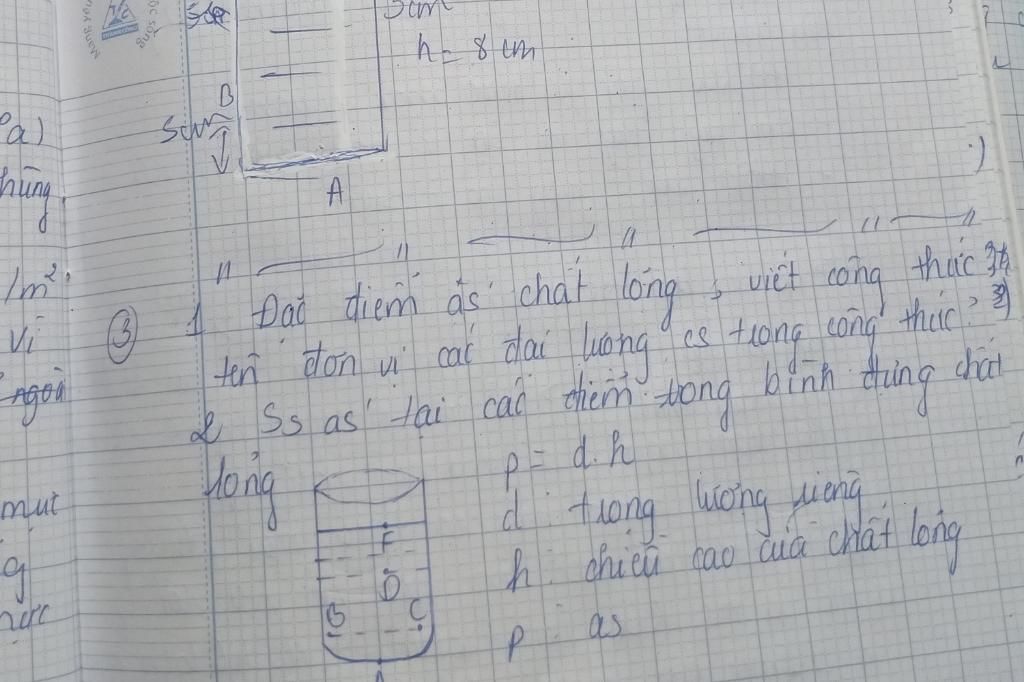 5cm
h = 8 cm
B
5cm
A
Pa)
hũng
1m²
Vì
ngoà
mực
g
③ 1 Đặc điểm ás chất lỏng, viết công thức
tên đơn vị các đại lượng cs trong công thức?
2 Ss as tại các điểm trong bình đựng chất
lỏng
p = d.h
d: trọng lượng riêng
h: chiều cao của chất lỏng
p: as
F
D
B C
A